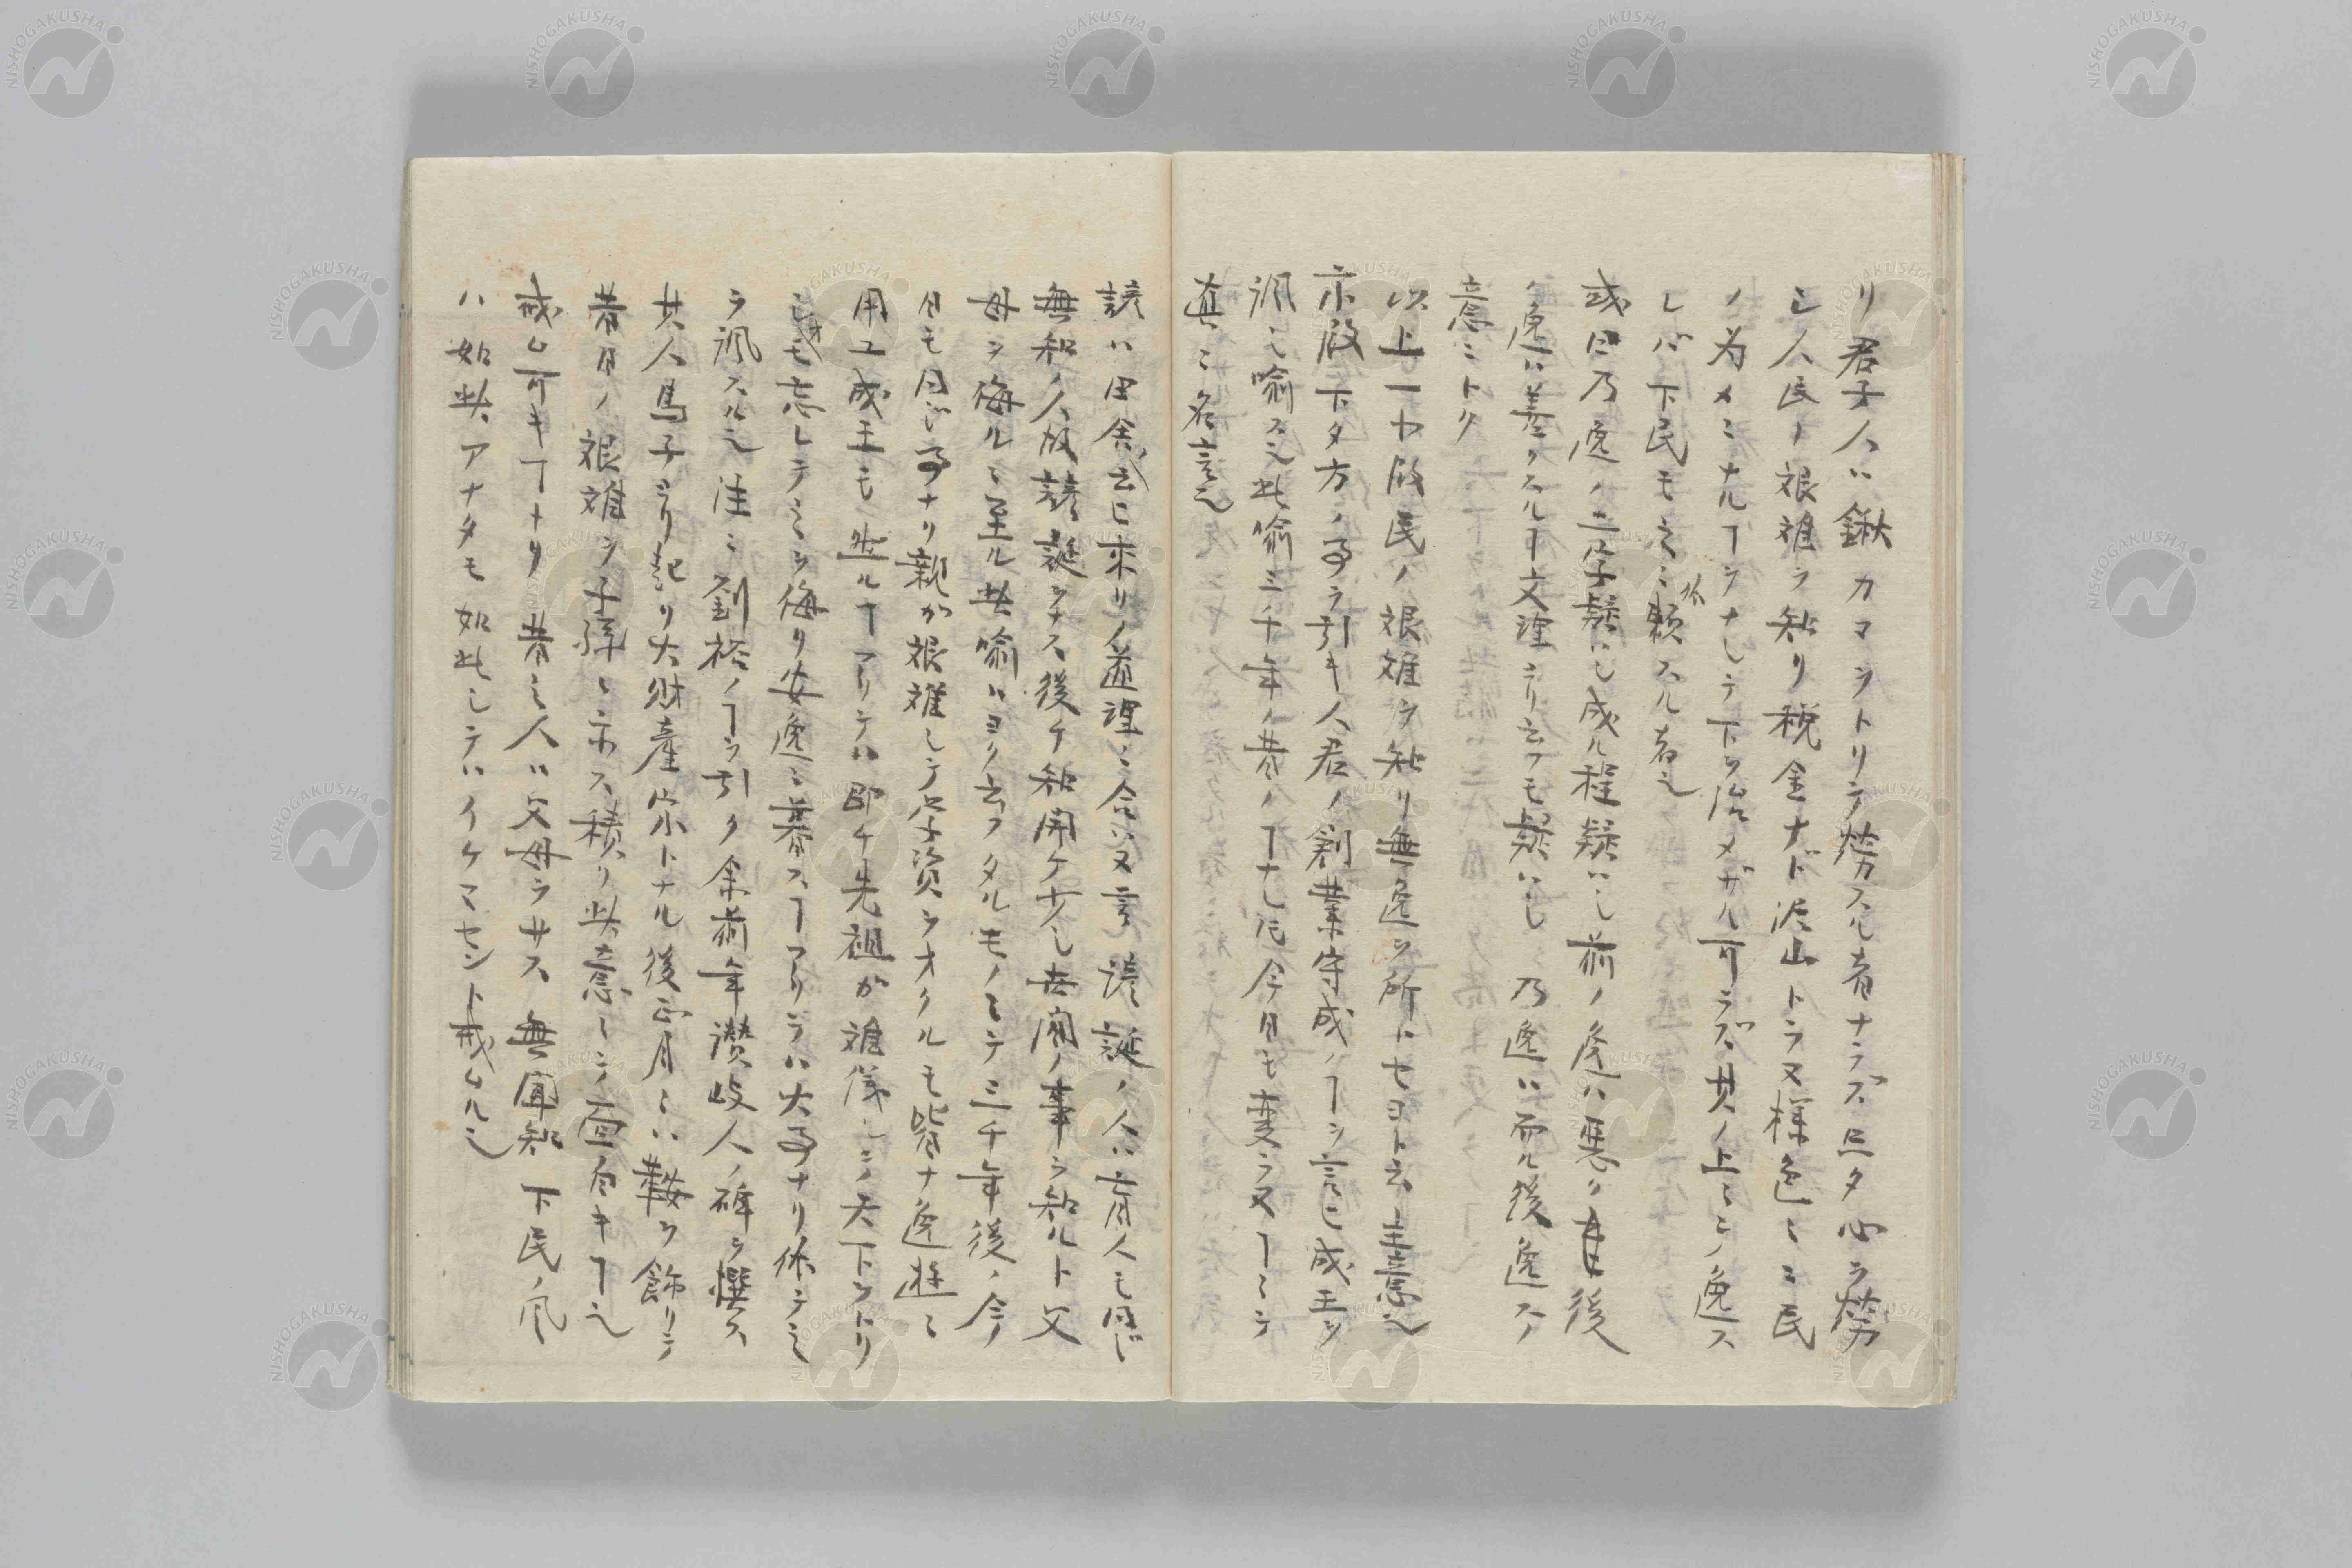 リ君子人ハ鍬カマヲトリテ労スル者ナラズ只タ心ヲ労
シ人民ノ艱難ヲ知リ税金ナド沢山トラヌ様色ニニ民
ノ為メニナルヿヲナシテ下ヲ治メザル可ラズ其ノ上ミノ逸ス
レバ下民モ之ニ依頼スル者也
或曰乃逸ノ二字疑ハシ成ル程疑ハシ前ノ逸ハ悪ク後
ノ逸ハ善クスルヿ文理ヨリ云フモ疑ハシ 乃逸ハ而ル後逸スノ
意ニトク
以上一ト一段民ノ艱難ヲ知リ無逸ヲ所トセヨト云主意也
示段下タ方ノ事ヲ引キ人君ノ創業守成ノヿヲ言ヒ成王ヲ
諷シ喩ス也此喩三千年ノ昔ノヿナレ𪜈今日モ変ラヌヿニテ
真ニ名言也
諺ハ田舎ノ云ヒ来リノ道理ニ合ハヌ言 諺誕ノ人ハ盲人モ同ジ
無知ノ人故諺誕ヲナス後チ知開ケ少シ世間ノ事ヲ知ルト父
母ヲ侮ルニ至ル此喩ハヨク云フタルモノニテ三千年後ノ今
日モ同ジ事ナリ親ガ艱難シテ学資ヲオクルモ皆ナ逸遊ニ
用ユ成王モ此ルヿアリテハ即チ先祖ガ難儀シテノ天下ヲトリ
シヿモ忘レテ之ヲ侮リ安逸ニ暮スヿアリテハ大事ナリ依テ之
ヲ諷スル也 注ニ劉裕ノヿヲ引ク余前年讃岐人ノ碑ヲ撰ス
其人馬子ヨリ起リ大財産家トナル後正月ニハ鞍ヲ飾リテ
昔日ノ艱難ヲ子孫ニ示ス積リ此意ニテ面白キヿ也
戒ム可キヿナリ 昔之人ハ父母ヲサス 無聞知 下民ノ風
ハ如此アナタモ如此シテハイケマセント戒ムル也